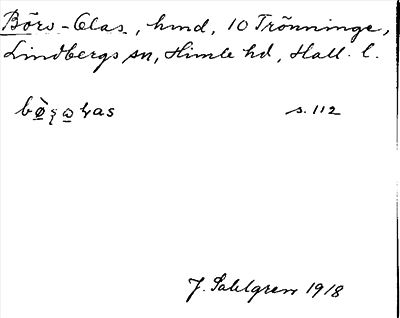 Börs-Clas, hmd, 10 Trönninge,
Lindbergs sn, Himle hd, Hall. l.
s. 112
J. Sahlgren 1918